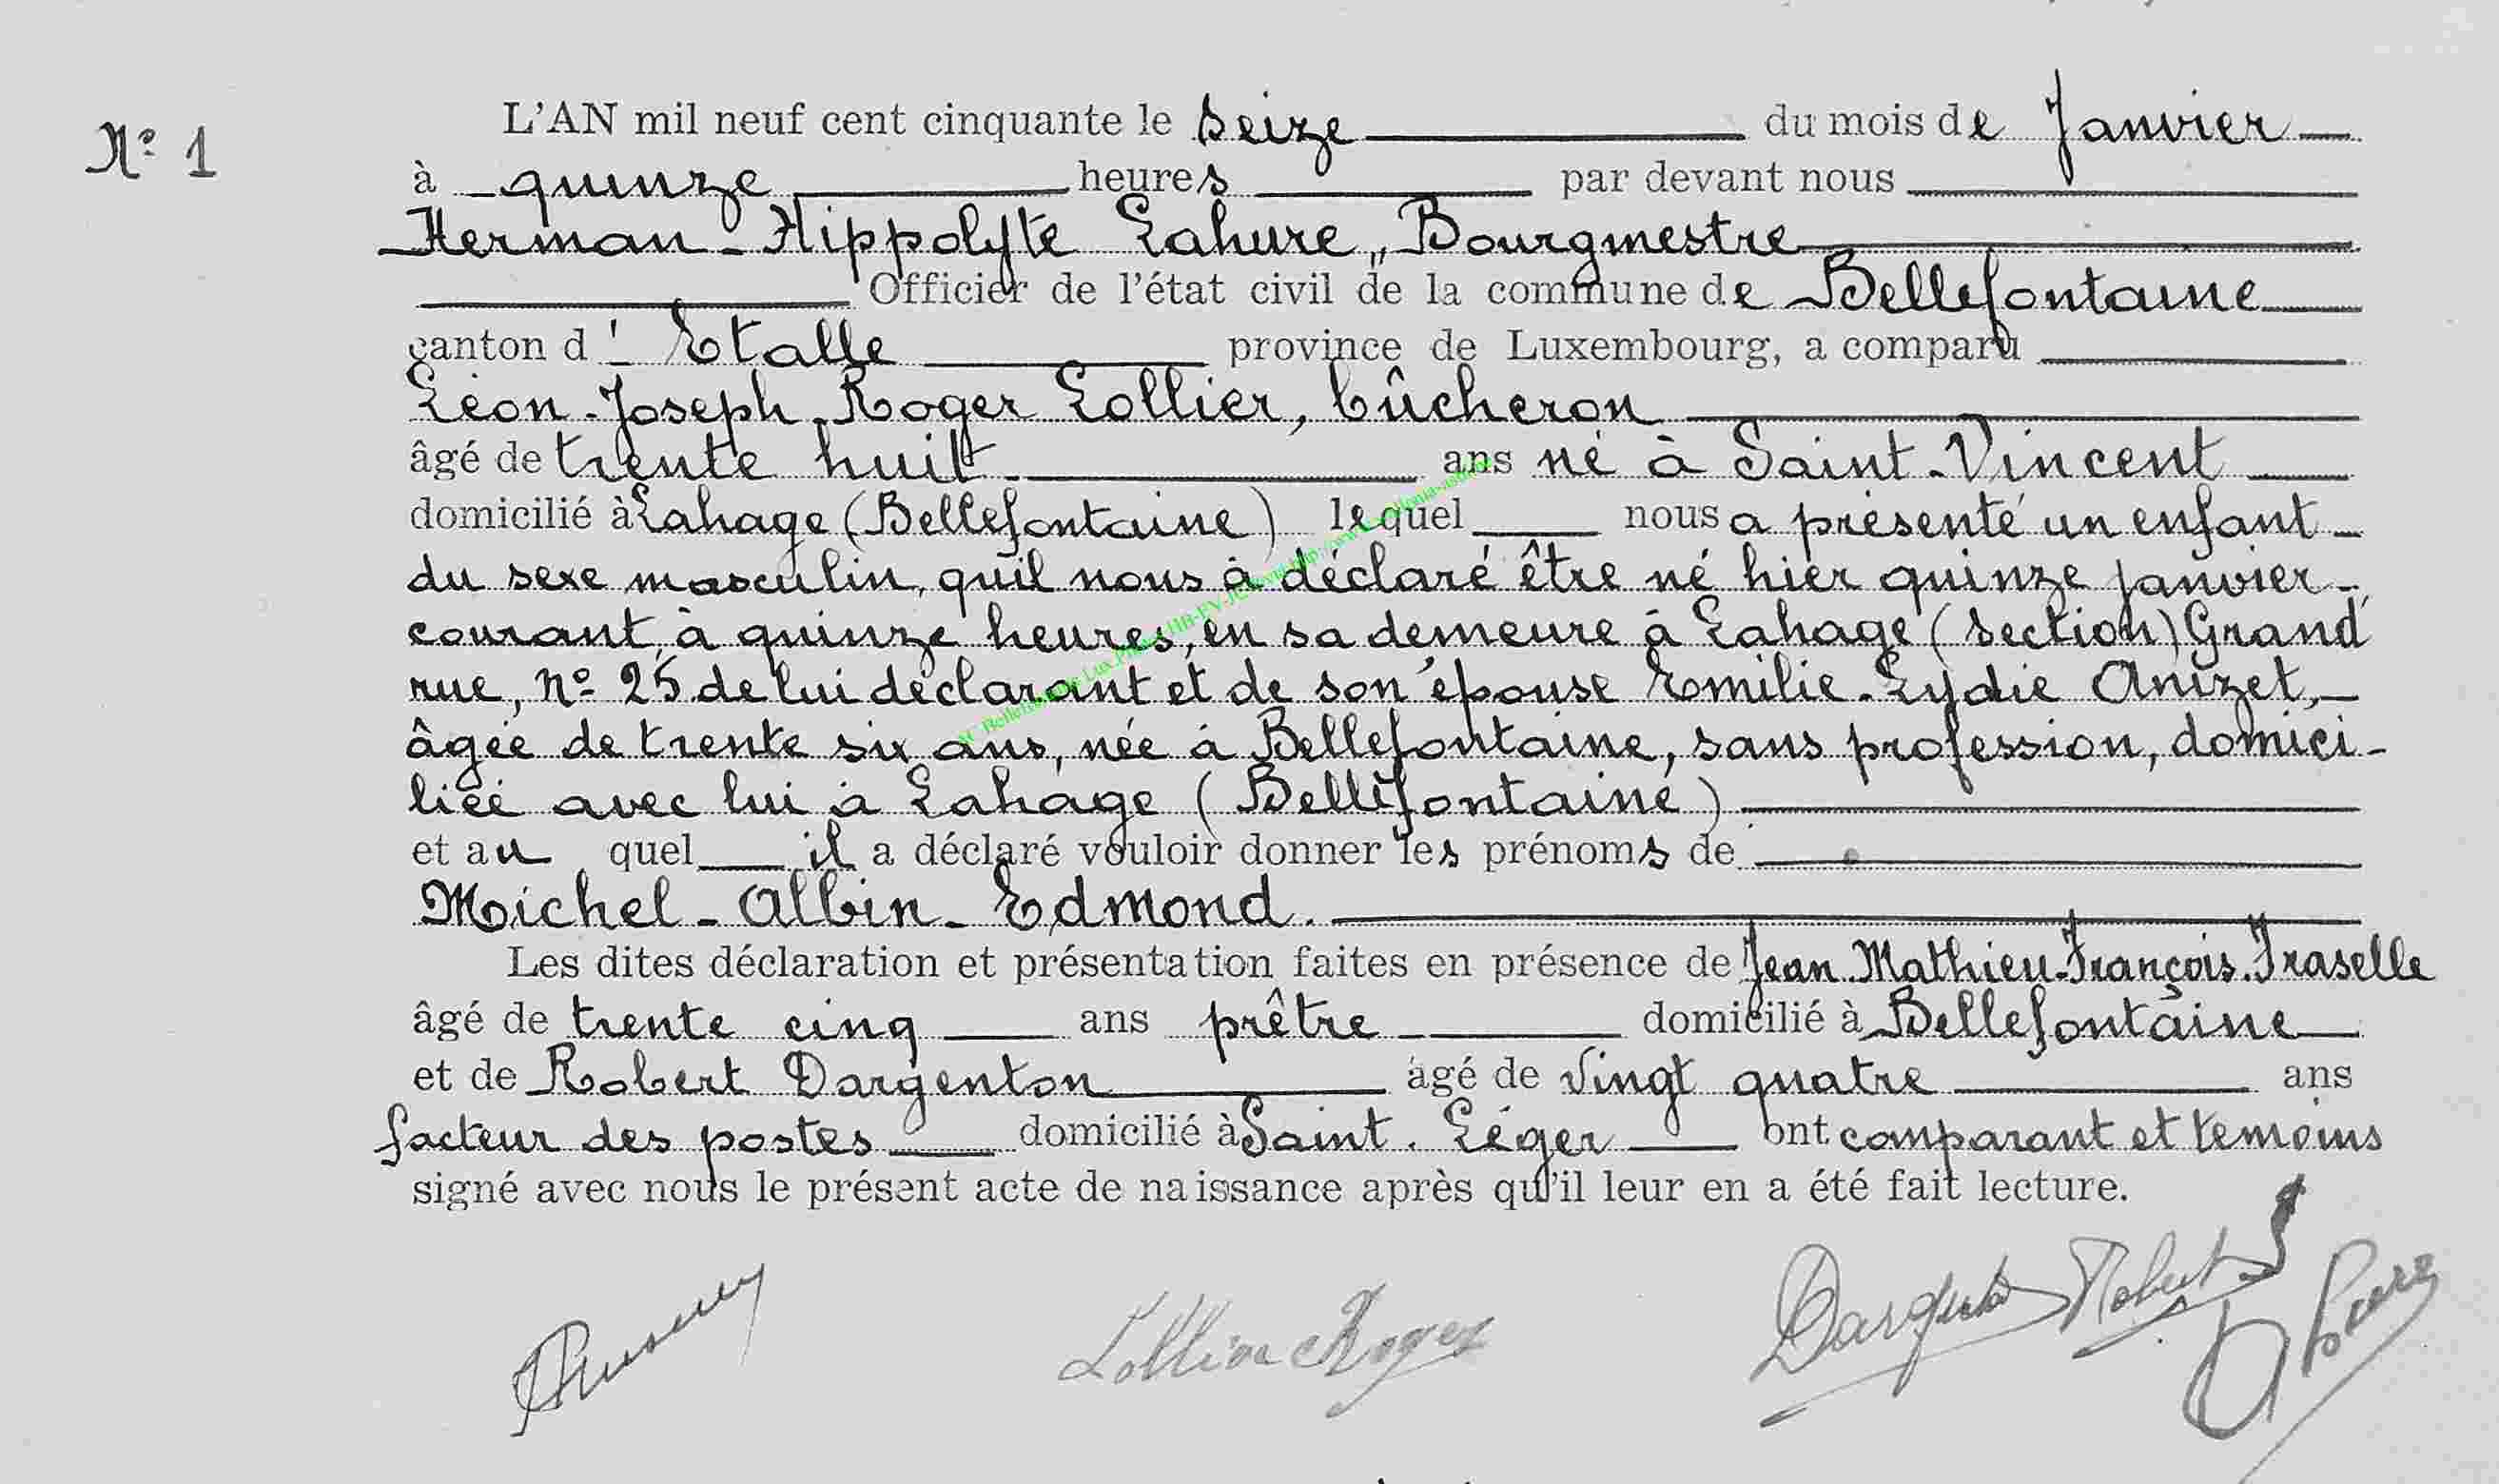 N° 1
L'AN mil neuf cent cinquante le seize du mois de Janvier
à quinze heures par devant nous
Herman-Hippolyte Lahure, Bourgmestre
Officier de l'état civil de la commune de Bellefontaine
canton d' Etalle province de Luxembourg, a comparu
Léon-Joseph-Roger Lollier, bûcheron
âgé de trente huit ans né à Saint-Vincent
domicilié à Lahage (Bellefontaine) lequel nous a présenté un enfant
du sexe masculin, qu'il nous a déclaré être né hier quinze janvier
courant, à quinze heures, en sa demeure à Lahage (section) Grand
rue, n° 25 de lui déclarant et de son épouse Emilie-Lydie Anizet,
âgée de trente six ans, née à Bellefontaine, sans profession, domici-
liée avec lui à Lahage (Bellefontaine)
et au quel il a déclaré vouloir donner les prénoms de
Michel-Albin-Edmond.
Les dites déclaration et présentation faites en présence de Jean-Mathieu-François-Fraselle
âgé de trente cinq ans prêtre domicilié à Bellefontaine
et de Robert Dargenton âgé de vingt quatre ans
facteur des postes domicilié à Saint-Léger ont comparant et temoins
signé avec nous le présent acte de naissance après qu'il leur en a été fait lecture.
Lollier Roger Robert